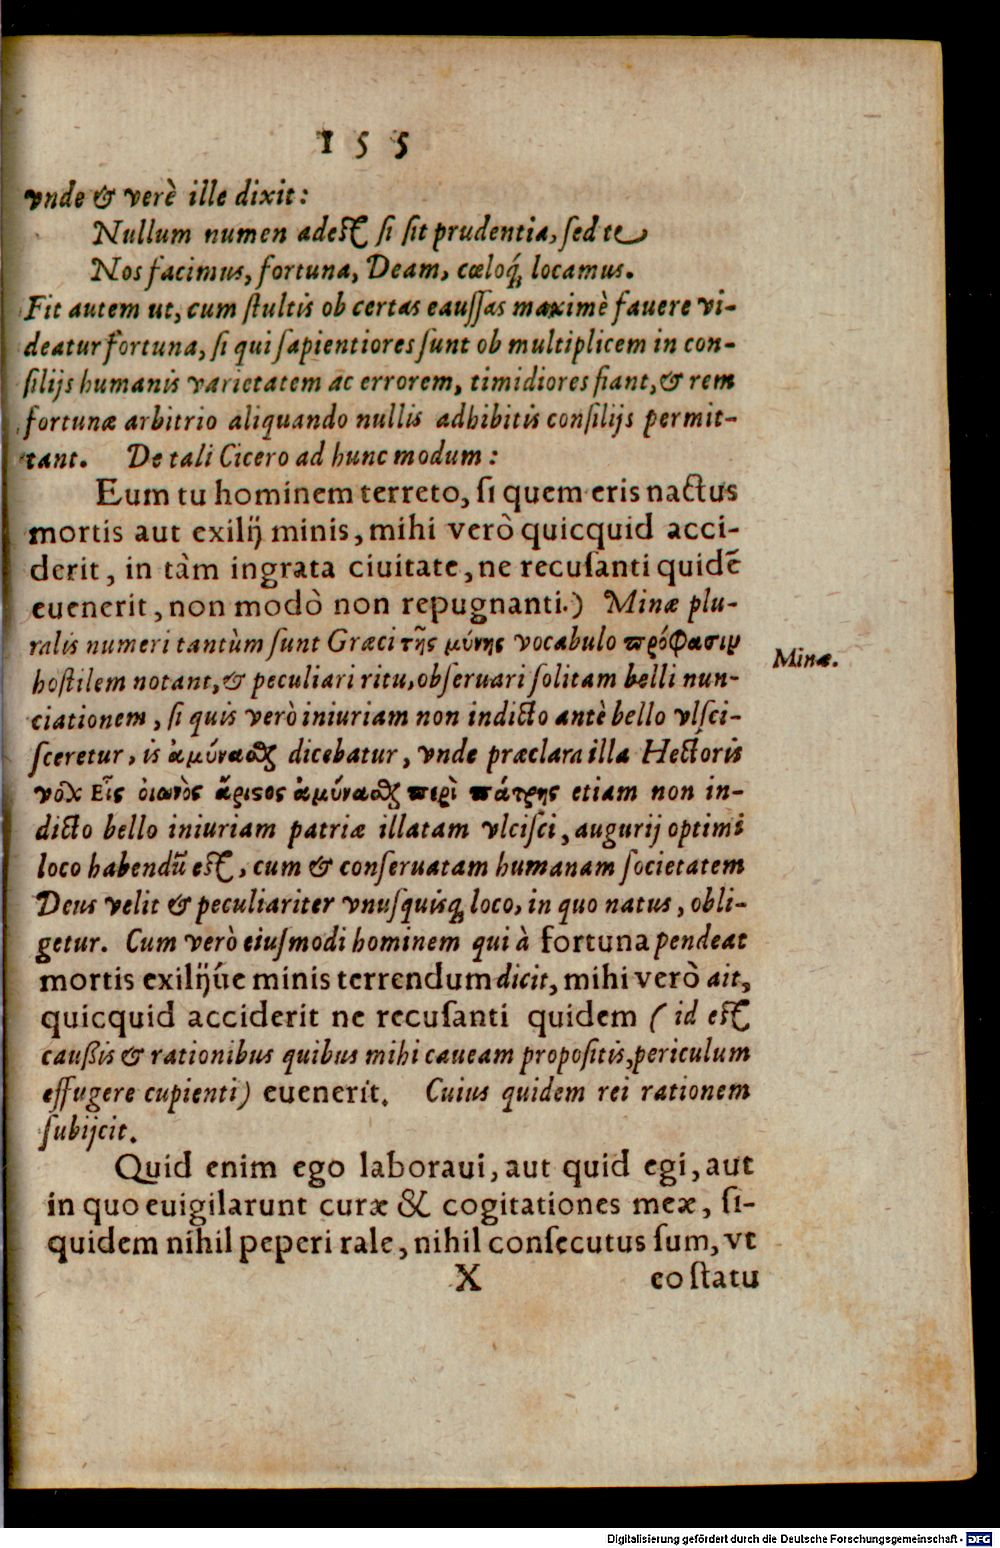 155
vnde & verè ille dixit:
Nullum numen adest si sit prudentia, sed te
Nos facimus, fortuna, Deam, cœloq́; locamus.
Fit autem ut, cum stultis ob certas eaussas maximè fauere vi-
deatur fortuna, si qui sapientiores sunt ob multiplicem in con-
silijs humanis varietatem ac errorem, timidiores fiant, & rem
fortunæ arbitrio aliquando nullis adhibitis consilijs permit-
tant. De tali Cicero ad hunc modum:
Eum tu hominem terreto, si quem eris nactus
mortis aut exilij minis, mihi verò quicquid acci-
derit, in tàm ingrata ciuitate, ne recusanti quidē
euenerit, non modò non repugnanti.) Minæ plu-
ralis numeri tantùm sunt Græci τῆς μύνης vocabulo πρόφασιν
Minæ.
hostilem notant, & peculiari ritu, obseruari solitam belli nun-
ciationem, si quis verò iniuriam non indicto antè bello vlsci-
sceretur, is ἀμύναδζ dicebatur, vnde præclara illa Hectoris
vox Εἷς οἰωνὸς ἄριςος ἀμύναδζ περὶ πάτρης etiam non in-
dicto bello iniuriam patriæ illatam vlcisci, augurij optimi
loco habendũ est, cum & conseruatam humanam societatem
Deus velit & peculiariter vnusquisq; loco, in quo natus, obli-
getur. Cum verò eiusmodi hominem qui à fortuna pendeat
mortis exilijúe minis terrendum dicit, mihi verò ait,
quicquid acciderit ne recusanti quidem (id est
caußis & rationibus quibus mihi caueam propositis, periculum
effugere cupienti) euenerit. Cuius quidem rei rationem
subijcit.
Quid enim ego laboraui, aut quid egi, aut
in quo euigilarunt curæ & cogitationes meæ, si-
quidem nihil peperi tale, nihil consecutus sum, vt
X eo statu
Digitalisierung gefördert durch die Deutsche Forschungsgemeinschaft - DFG